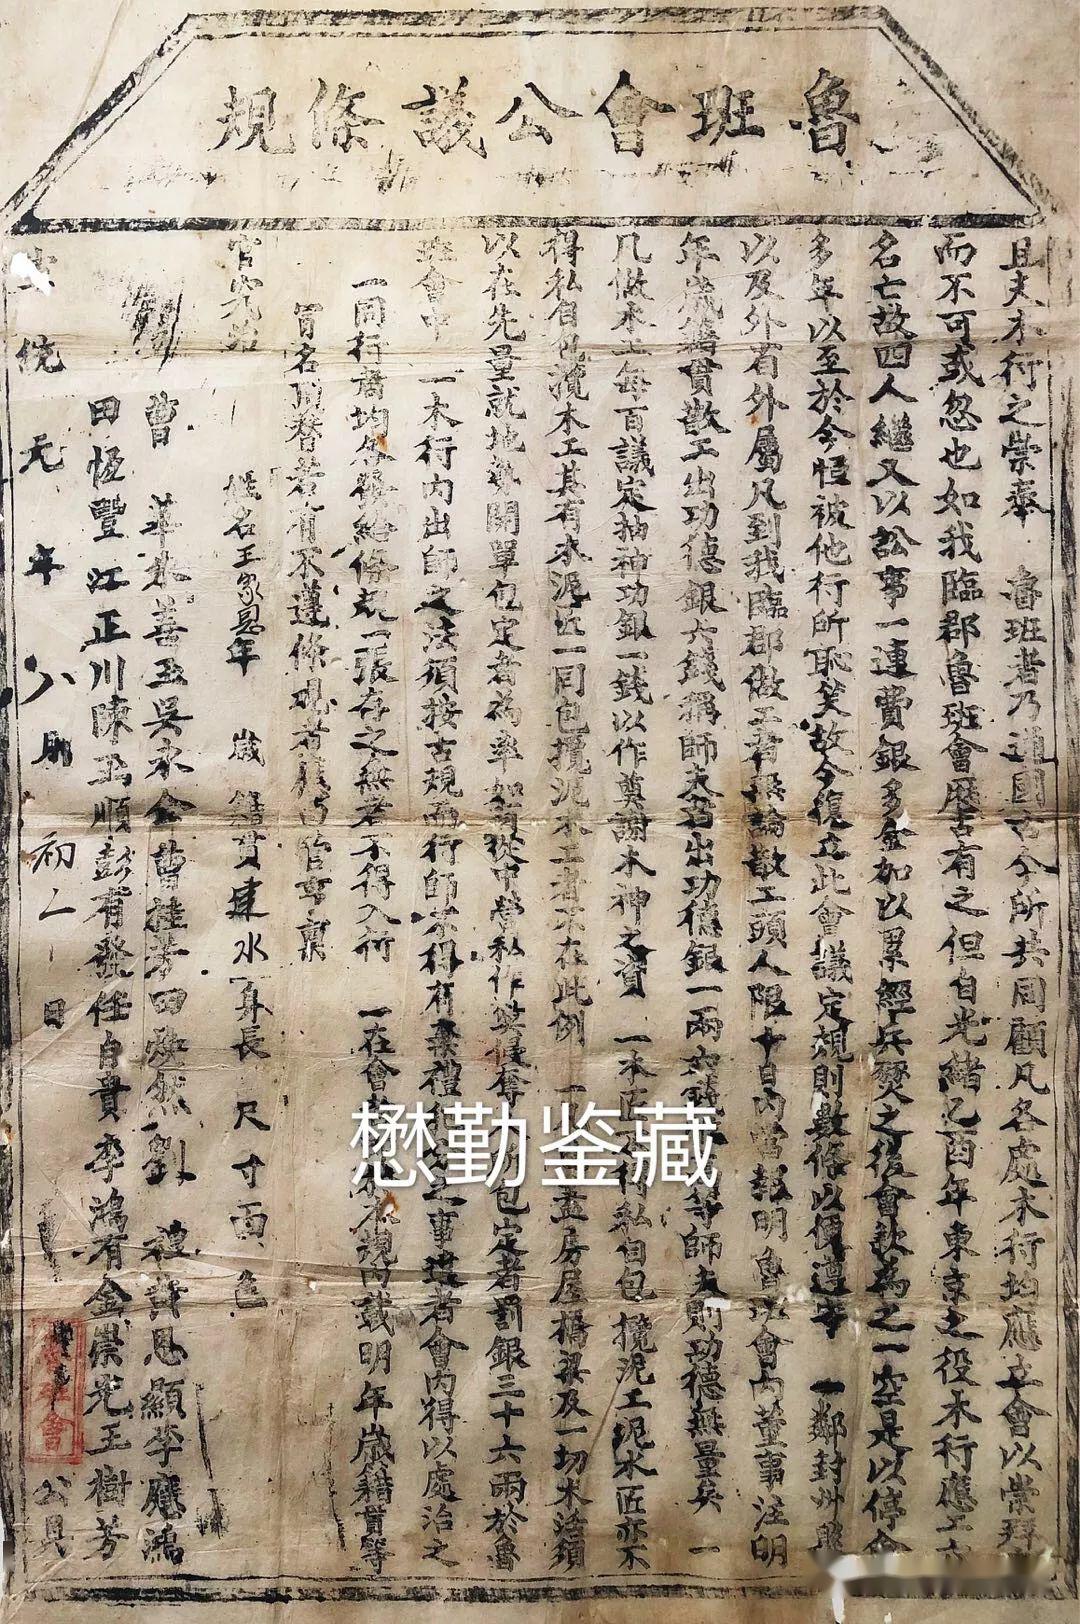 魯班會公議條規
且夫木行之崇奉 魯班者乃通國古今所共同顧凡各處木行均應立會以崇拜
而不可或忽也如我臨郡魯班會歷古有之但自光緒乙酉年東京之役木行應工
名亡故四人繼又以訟事一連費銀多金加以累經兵燹之後會款為之一空是以停會
多年以至於今恒被他行所恥笑故今復立此會議定規則數條以便遵守 一鄰封州縣
以及外省外屬凡到我臨郡做工者無論散工頭人限十日內當報明魯班會內董事注明
年歲籍貫散工出功德銀六錢稱師夫者出功德銀一兩六錢 等師夫則功德無量矣 一
凡做木工每百議定抽神功銀一錢以作奠謝木神之資 一木匠不得私自包攬泥工泥水匠亦不
得私自包攬木工其有水泥匠一同包攬泥木工者不在此例 一 蓋房屋橋梁及一切木活須
以在先量就地勢開單包定者為率如有從中營私作弊侵奪 包定者罰銀三十六兩於魯
班會中 一木行內出師之法須按古規而行師不得有棄禮 之事違者會內得以處治之
一同行者均各發給條規一張存之無者不得入行 一在會 條規內載明年歲籍貫等
冒名頂替若有不遵條規者 管事稟
官究治 姓名王家 年 歲 籍貫建水 身長 尺 寸 面 色
曹 善 玉 吳永 曹桂芳 田 然 劉 禮 恩顯 李應鴻
田恆豐 江正川 陳玉順 彭有發 任自貴 李鴻有 金崇光 王樹芳
宣統元年八月初二日 會 公具
懋勤鉴藏